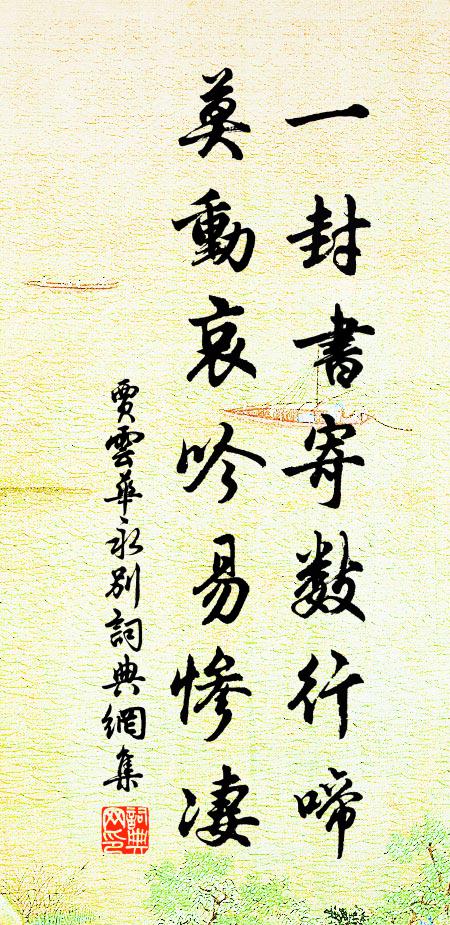 一封書寄數行啼
莫動哀吟易慘凄
賈雲華永别詞典網集
詞典網印